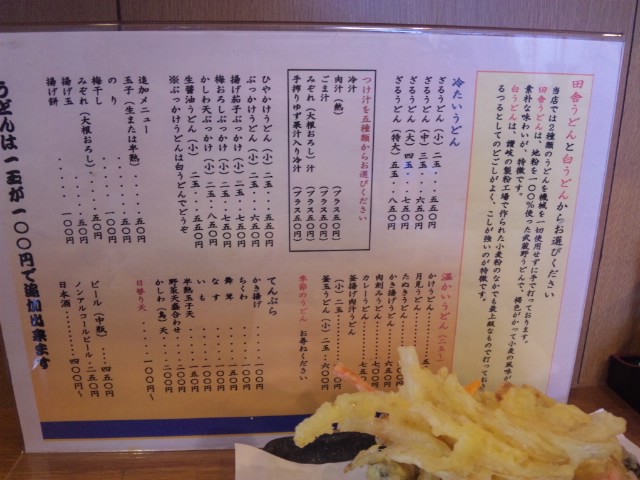 田舎うどんと白うどんからお選びください
当店では2種類のうどんを機械を一切使用せずに手で打っております。
田舎うどんは、地粉を100%使った武蔵野うどんで、褐色がかって小麦の風味が
素朴な味わいが、特徴です。
白うどんは、讃岐の製粉工場で作られた小麦粉のなかでも最上級なもので打ってお
るつるとしてのどごしがよく、こしが強いのが特徴です。
冷たいうどん
ざるうどん(小)二玉・・五五〇円
ざるうどん(中)三玉・・六五〇円
ざるうどん(大)四玉・・七五〇円
ざるうどん(特大)五玉・・八五〇円
つけ汁を五種類からお選びください
冷汁
肉汁(熱)(プラス五〇円)
ごま汁(プラス五〇円)
みぞれ(大根おろし)汁(プラス五〇円)
手搾りゆず果汁入り冷汁(プラス五〇円)
ひやかけうどん(小)二玉・・五五〇円
ぶっかけうどん(小)二玉・・六五〇円
揚げ茄子ぶっかけ(小)二玉・七五〇円
梅おろしぶっかけ(小)二玉・八五〇円
かしわ天ぶっかけ(小)二玉・八五〇円
生醤油うどん(小)二玉・・五五〇円
※ぶっかけうどんは白うどんでどうぞ
追加メニュー
玉子(生または半熟)・・・五〇円
のり・・・五〇円
梅干し・・・五〇円
みぞれ(大根おろし)・・・五〇円
揚げ玉
揚げ餅・・・一〇〇円
うどんは一玉が一〇〇円で追加出来ます
温かいうどん
かけうどん
月見うどん
たぬきうどん
かき揚げうどん
肉刻みうどん・・・七〇〇
カレーうどん
釜揚げ肉汁うどん
(小)二玉
釜玉うどん(小)二玉・六〇〇円
季節のうどん お尋ねください
てんぷら
かき揚げ・・・一〇〇円
ちくわ・・・一〇〇円
なす
いも
半熟玉子天
野菜天盛合わせ
かしわ(鳥)天・・二〇〇円
日替り天・・・一〇〇円〜
ビール(中瓶)・・四五〇円
ノンアルコールビール・二五〇円
日本酒・・・四〇〇円〜